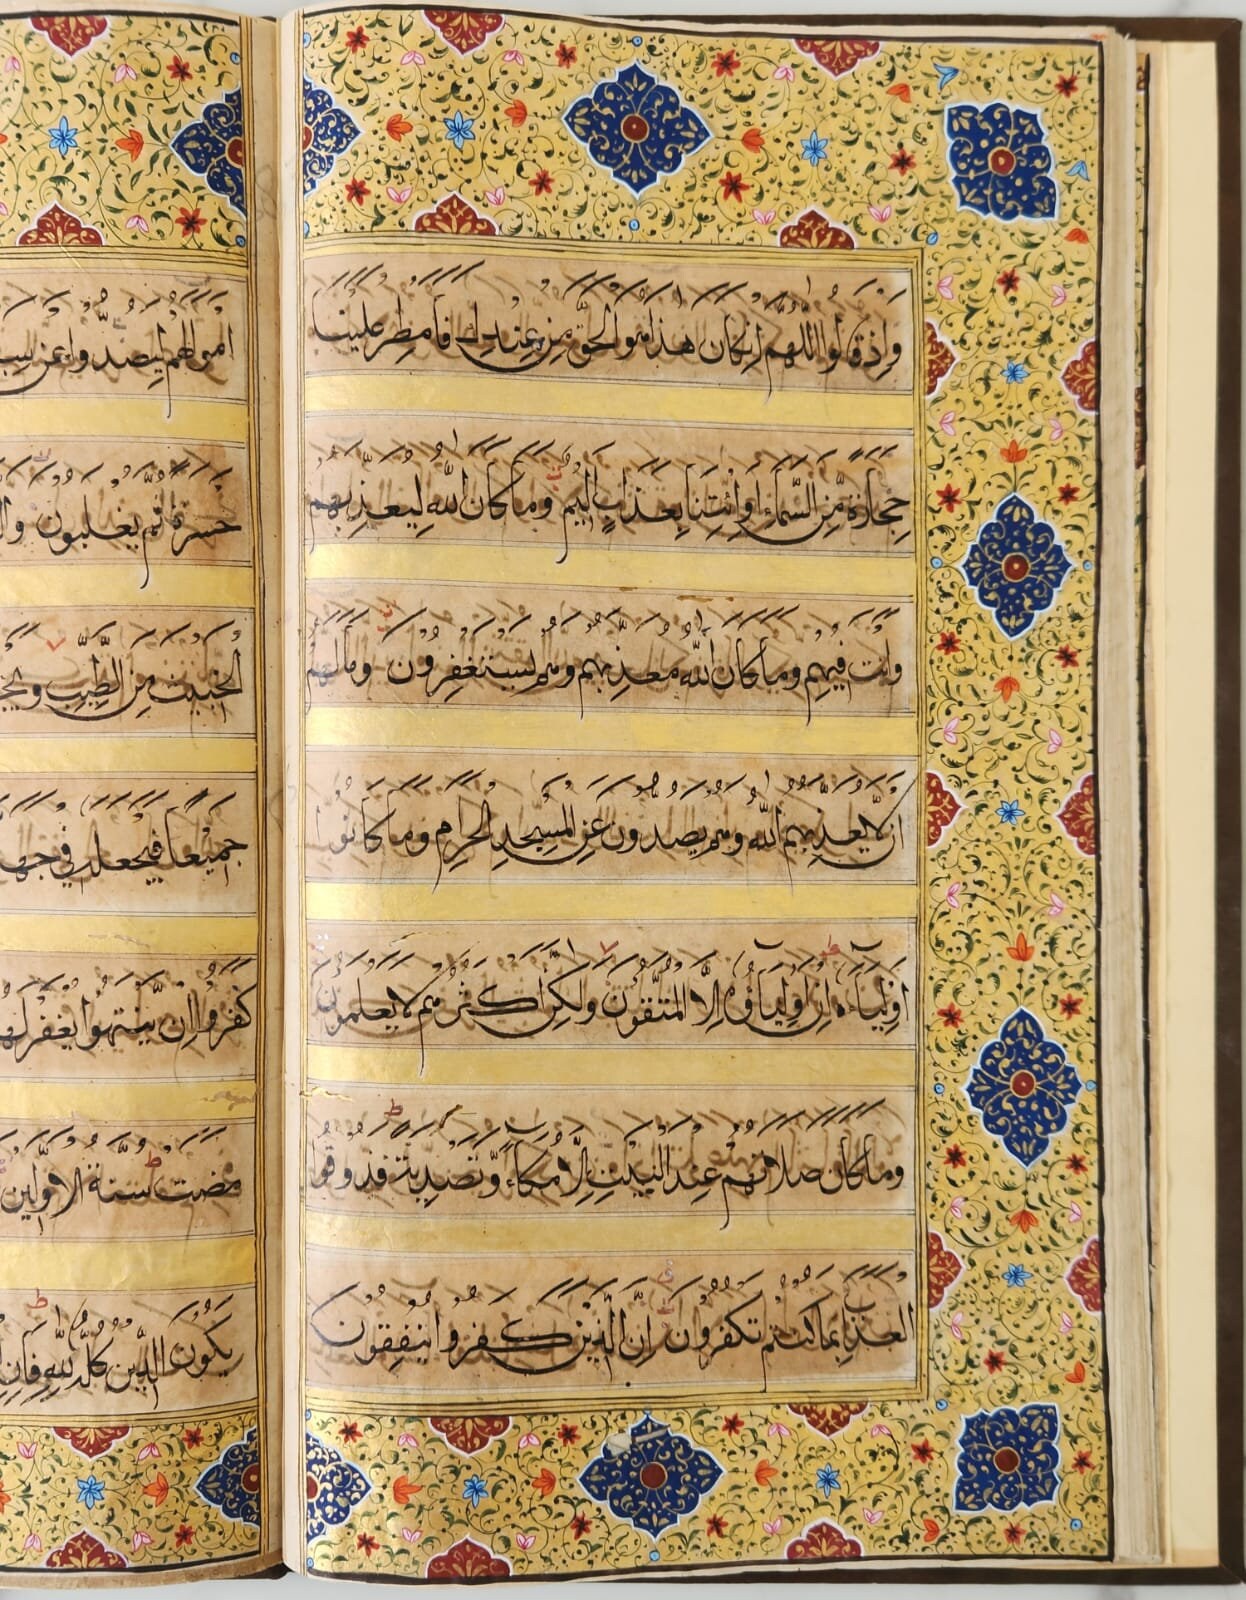 وَإِذْ قَالُوا اللَّهُمَّ إِنْ كَانَ هَذَا هُوَ الْحَقَّ مِنْ عِنْدِكَ فَأَمْطِرْ عَلَيْنَا
حِجَارَةً مِّنَ السَّمَاءِ أَوِ ائْتِنَا بِعَذَابٍ أَلِيمٍ وَمَا كَانَ اللَّهُ لِيُعَذِّبَهُمْ
وَأَنْتَ فِيهِمْ وَمَا كَانَ اللَّهُ مُعَذِّبَهُمْ وَهُمْ يَسْتَغْفِرُونَ وَمَا لَهُمْ
أَنْ لَا يُعَذِّبَهُمُ اللَّهُ وَهُمْ يَصُدُّونَ عَنِ الْمَسْجِدِ الْحَرَامِ وَمَا كَانُوا
أَوْلِيَاءَهُ إِنْ أَوْلِيَاؤُهُ إِلَّا الْمُتَّقُونَ وَلَكِنَّ أَكْثَرَهُمْ لَا يَعْلَمُونَ
وَمَا كَانَ صَلَاتُهُمْ عِنْدَ الْبَيْتِ إِلَّا مُكَاءً وَتَصْدِيَةً فَذُوقُوا
الْعَذَابَ بِمَا كُنْتُمْ تَكْفُرُونَ إِنَّ الَّذِينَ كَفَرُوا يُنْفِقُونَ
أَمْوَالَهُمْ لِيَصُدُّوا عَنْ
حَسْرَةً ثُمَّ يُغْلَبُونَ
الْخَبِيثَ مِنَ الطَّيِّبِ
جَمِيعًا فَيَجْعَلَهُ فِي
كَفَرُوا إِنْ يَنْتَهُوا يُغْفَرْ لَهُمْ
مَضَتْ سُنَّةُ الْأَوَّلِينَ
يَكُونَ الدِّينُ كُلُّهُ لِلَّهِ فَإِنِ